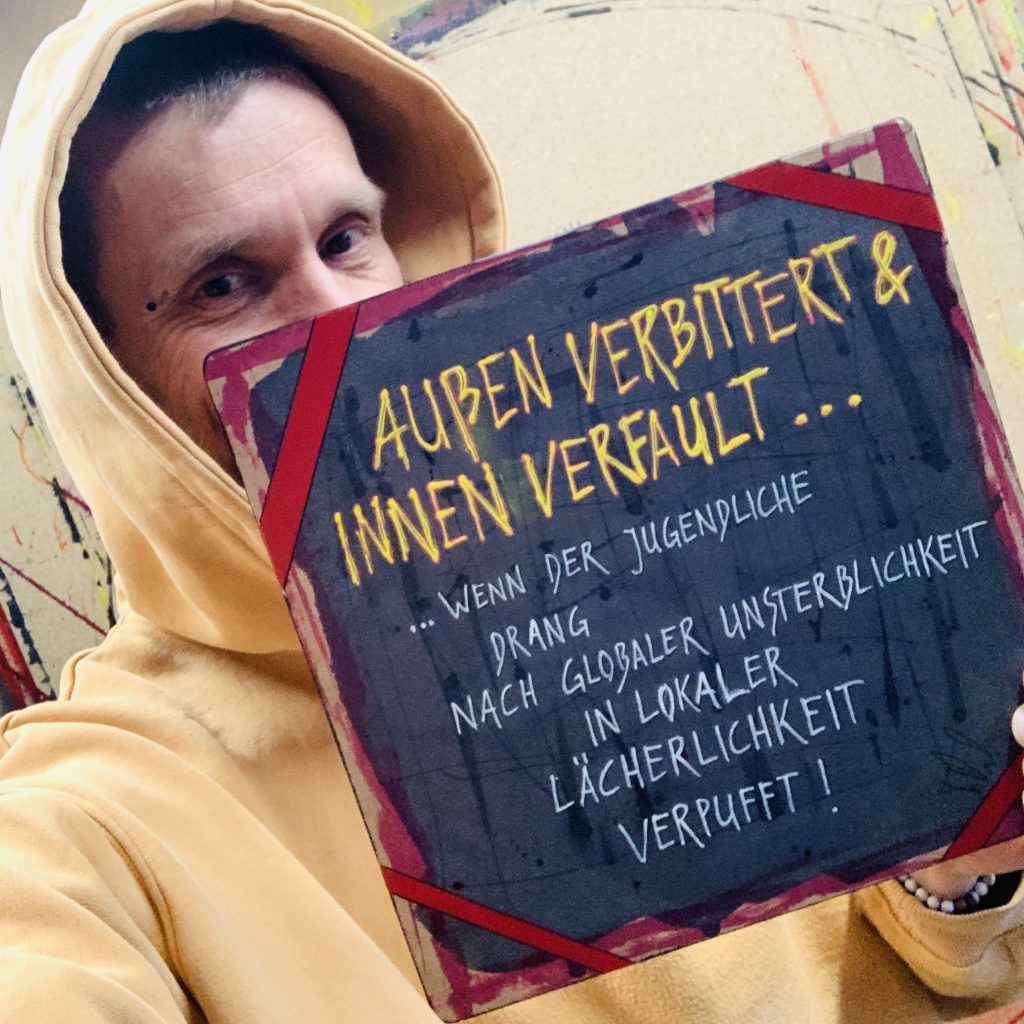 AUßEN VERBITTERT &
INNEN VERFAULT ...
... WENN DER JUGENDLICHE
DRANG
NACH GLOBALER UNSTERBLICHKEIT
IN LOKALER
LÄCHERLICHKEIT
VERPUFFT !